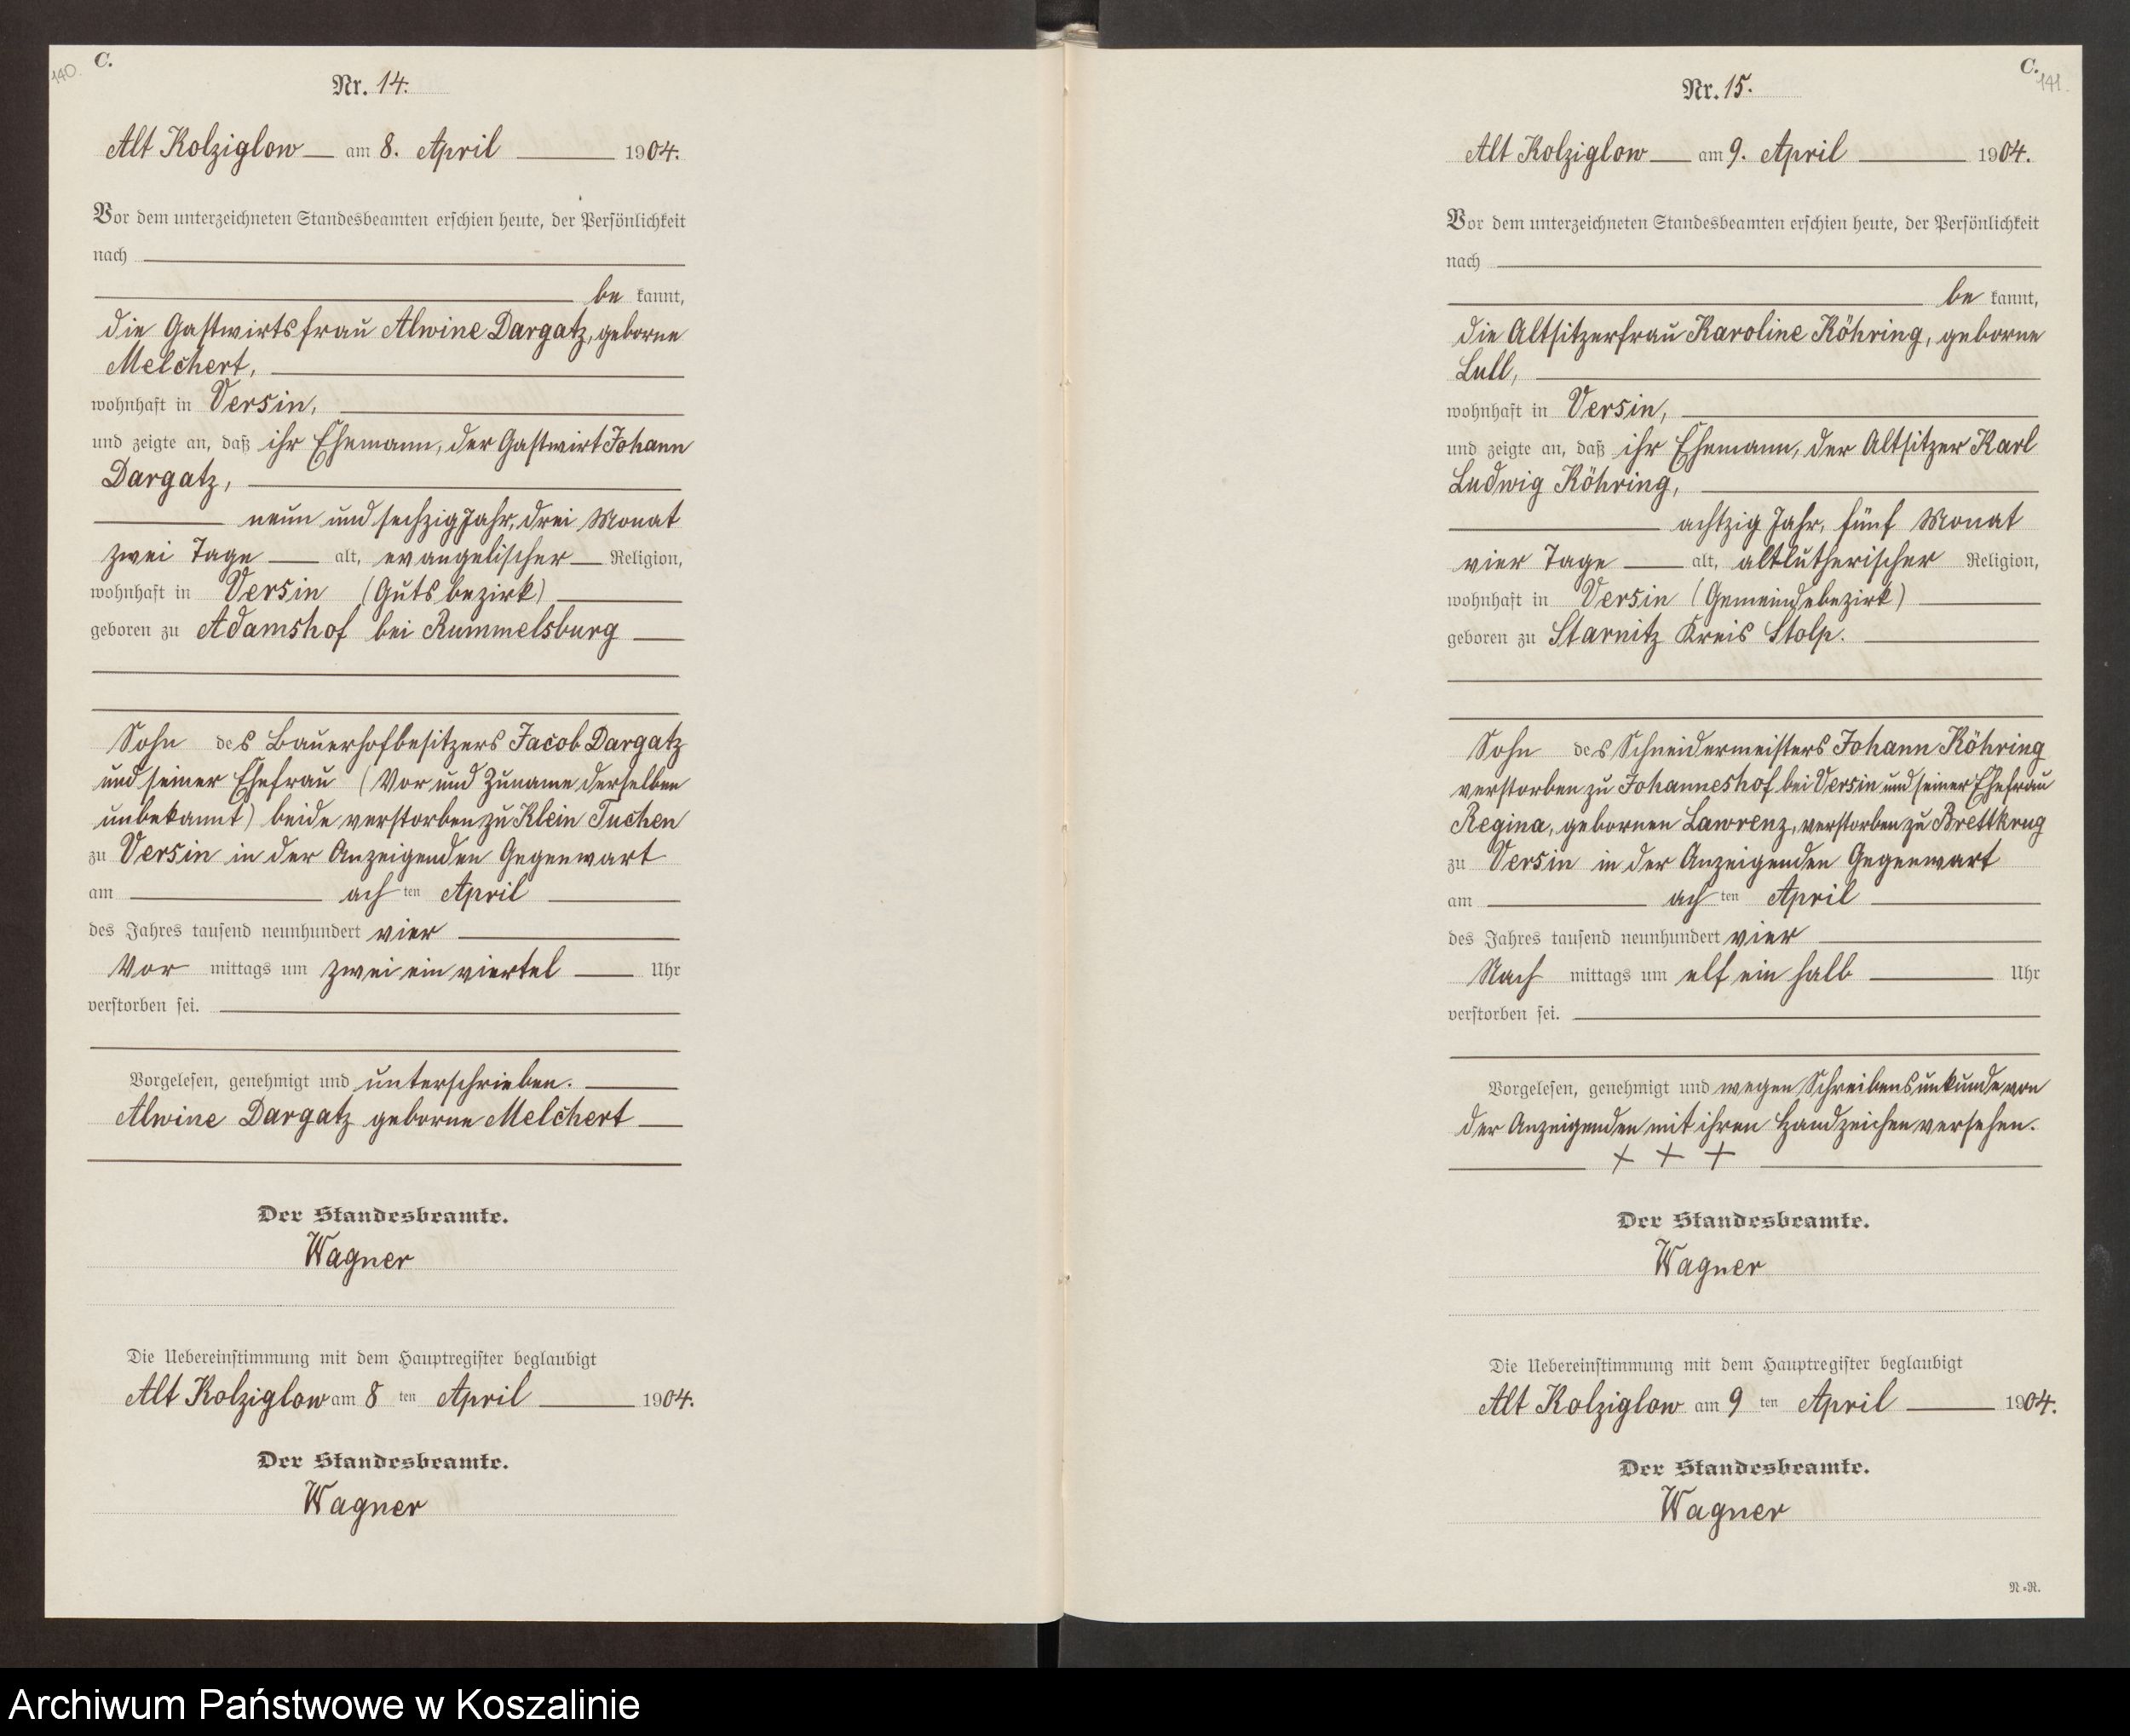 140.
C.
Nr. 14.
Alt Kolziglow am 8. April 1904.
Vor dem unterzeichneten Standesbeamten erschien heute, der Persönlichkeit
nach
be kannt,
die Gastwirtsfrau Alwine Dargatz, geborne
Melchert,
wohnhaft in Versin,
und zeigte an, daß ihr Ehemann, der Gastwirt Johann
Dargatz,
neun und sechzig Jahr, drei Monat
zwei Tage alt, evangelischer Religion,
wohnhaft in Versin (Gutsbezirk)
geboren zu Adamshof bei Rummelsburg
Sohn des Bauerhofbesitzers Jacob Dargatz
und seiner Ehefrau (Vor und Zuname derselben
unbekannt) beide verstorben zu Klein Tuchen
zu Versin in der Anzeigenden Gegenwart
am ach ten April
des Jahres tausend neunhundert vier
Vor mittags um zwei ein viertel Uhr
verstorben sei.
Vorgelesen, genehmigt und unterschrieben.
Alwine Dargatz geborne Melchert
Der Standesbeamte.
Wagner
Die Uebereinstimmung mit dem Hauptregister beglaubigt
Alt Kolziglow am 8 ten April 1904.
Der Standesbeamte.
Wagner
C.
141.
Nr. 15.
Alt Kolziglow am 9. April 1904.
Vor dem unterzeichneten Standesbeamten erschien heute, der Persönlichkeit
nach
be kannt,
die Altsitzerfrau Karoline Röhring, geborne
Lull,
wohnhaft in Versin,
und zeigte an, daß ihr Ehemann, der Altsitzer Karl
Ludwig Röhring,
achtzig Jahr, fünf Monat
vier Tage alt, altlutherischer Religion,
wohnhaft in Versin (Gemeindebezirk)
geboren zu Starnitz Kreis Stolp.
Sohn des Schneidermeisters Johann Röhring
verstorben zu Johanneshof bei Versin und seiner Ehefrau
Regina, gebornen Lawrenz, verstorben zu Brettkrug
zu Versin in der Anzeigenden Gegenwart
am ach ten April
des Jahres tausend neunhundert vier
Nach mittags um elf ein halb Uhr
verstorben sei.
Vorgelesen, genehmigt und wegen Schreibensunkunde von
der Anzeigenden mit ihren Handzeichen versehen.
+ + +
Der Standesbeamte.
Wagner
Die Uebereinstimmung mit dem Hauptregister beglaubigt
Alt Kolziglow am 9 ten April 1904.
Der Standesbeamte.
Wagner
N.=R.
Archiwum Państwowe w Koszalinie